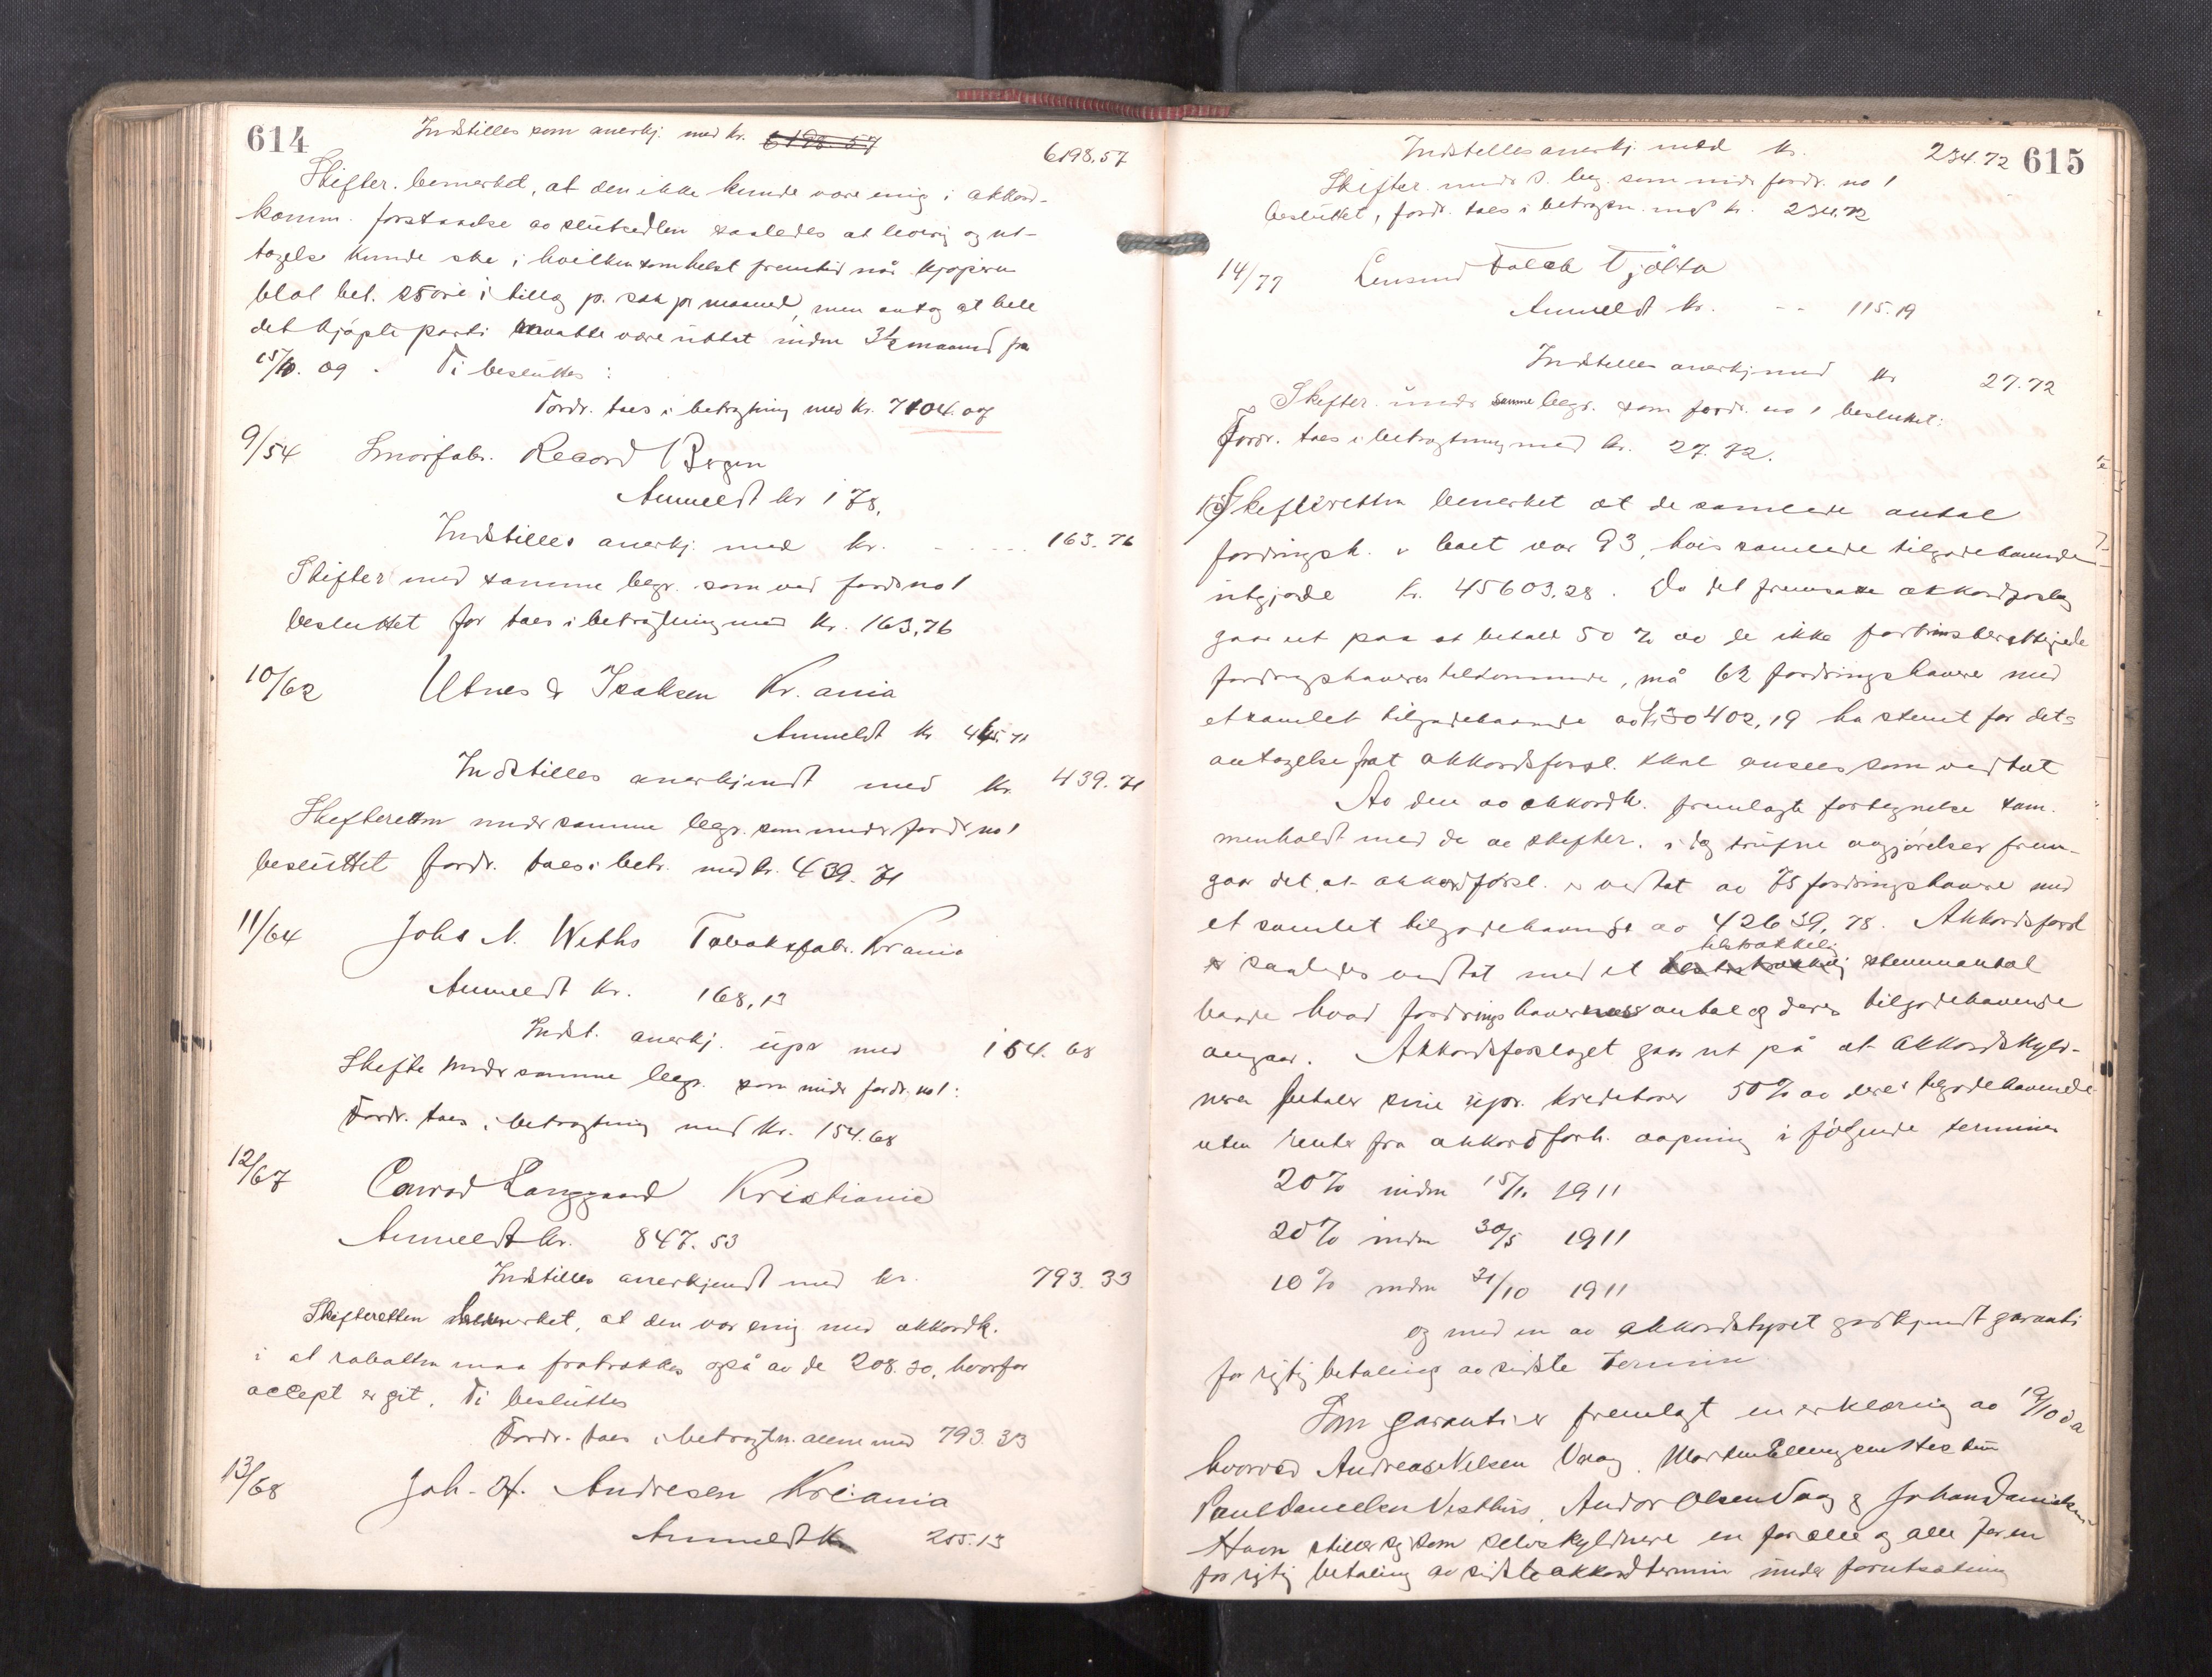 614
Indstilles som anerkj. med kr. 6198.57 6198,57
Skifter. bemerket, at den ikke kunde være enig i akkord-
komm. forstaaelse av slutsedlen saaledes at levering og ut-
tagelse kunde ske i hvilkensomhelst fremtid når kjøperen
blot bet. 25 øre i tillæg pr. sæk pr maaned, men antog at hele
det kjøpte parti maatte være uttat inden 3½ maaned fra
15/10. 09. Ti besluttes:
Fordr. taes i betragtning med kr. 7104.07
9/54 Smørfabr. Record Bergen
Anmeldt kr 178,
Indstilles anerkj. med kr. 163.76
Skifter med samme begr. som ved fordr no 1
besluttet for taes i betragtning med kr. 163,76
10/62 Utnes & Isaksen Kr.ania
Anmeldt kr. 445.71
Indstilles anerkjendt med kr. 439.71
Skifteretten under samme begr. som under fordr no 1
besluttet fordr. taes i betr. med kr. 439.71
11/64 Johs N. Weths Tobaksfabr. Krania
Anmeldt kr. 168,13
Indst. anerkj. upr med 154.68
Skifte under samme begr. som under fordr. no 1:
Fordr. taes i betragtning med kr. 154.68
12/67 Conrad Langgaard Kristiania
Anmeldt kr. 847.53
Indstilles anerkjendt med kr. 793.33
Skifteretten bemerket, at den var enig med akkordk.
i at rabatten maa fratrækkes også av de 208.30, hvorfor
accept er git. Ti besluttes
Fordr. taes i betragtn. alene med 793.33
13/68 Joh. H. Andresen Kr.ania
Anmeldt kr 255.13
615
Indstilles anerkj. med kr. 234.72
Skifter. under s. beg. som under fordr. no 1
besluttet, fordr. taes i betragtn. med kr. 234.72
14/77 Lensmd Falch Tjøtta
Anmeldt kr. -- 115.19
Indstilles anerkj med kr 27.72
Skifter. under samme begr. som fordr. no 1 besluttet:
Fordr. taes i betragtning med kr. 27.72.
Skifteretten bemerket at de samlede antal
fordringsh. i boet var 93, hvis samlede tilgodehavende
utgjorde kr. 45603,28. Da det fremsatte akkordforslag
gaar ut paa at betale 50 % av de ikke fortrinsberettigede
fordringshaveres tilkommende, må 62 fordringshavere med
et samlet tilgodehavende av kr 30402,19 ha stemt for dets
antagelse for at akkordsforsl. skal ansees som vedtat
Av den av akkordk. fremlagte fortegnelse sam-
menholdt med de av skifter. i dag trufne avgjørelser frem-
gaar det, at akkordforsl. er vedtat av 75 fordringshavere med
et samlet tilgodehavende av 42639,78. Akkordsforsl
er saaledes vedtat med et tilstrækkelig stemmeantal
baade hvad fordringshavernes antal og deres tilgodehavende
angaar. Akkordsforslaget gaar ut på at akkordskyld-
neren betaler sine upr. kreditorer 50% av deres tilgodehavende
uten renter fra akkordforh. aapning i følgende terminer
20% inden 15/1. 1911
20% inden 30/5 1911
10% inden 31/10 1911
og med en av akkordstyret godkjendt garanti
for rigtig betaling av sidste termin
Som garanti er fremlagt en erklæring av 19/10 da
hvorved Andreas Nilsen Vaag. Morten Ellingsen
Paul Danielsen Vesthus, Andor Olsen Vaag og Johan Danielsen
Havn stiller sig som selvskyldnere en for alle og alle for en
for rigtig betaling av sidste akkordtermin under forutsætning